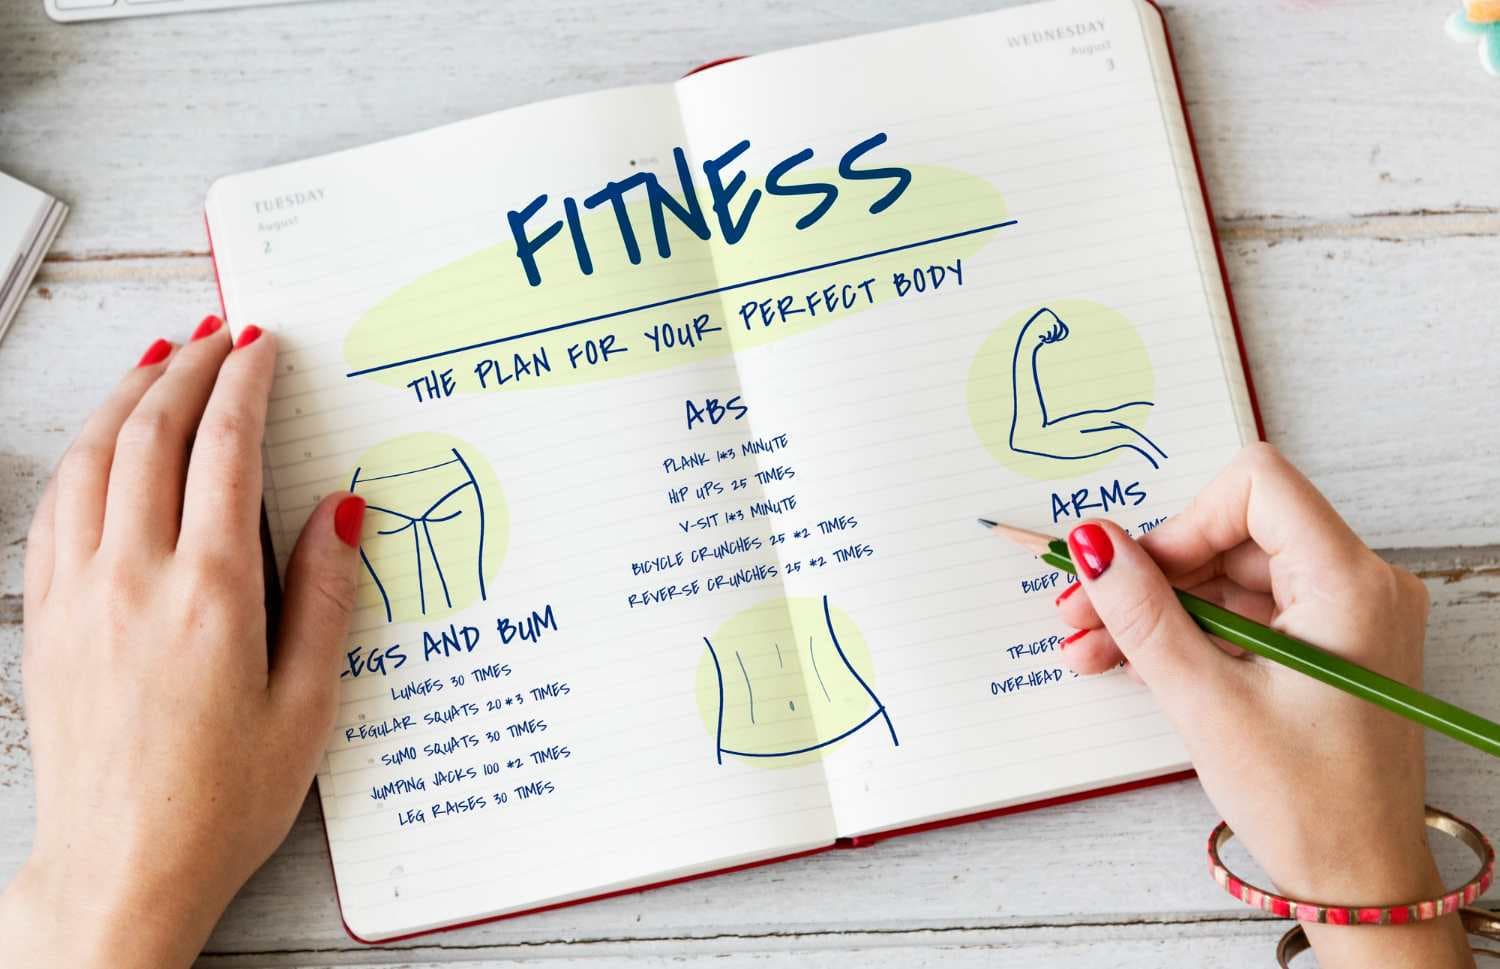 TUESDAY
August
2
WEDNESDAY
August
3
FITNESS
THE PLAN FOR YOUR PERFECT BODY
ABS
PLANK 1*3 MINUTE
HIP UPS 25 TIMES
V-SIT 1*3 MINUTE
BICYCLE CRUNCHES 25 *2 TIMES
REVERSE CRUNCHES 25 *2 TIMES
LEGS AND BUM
LUNGES 30 TIMES
REGULAR SQUATS 20*3 TIMES
SUMO SQUATS 30 TIMES
JUMPING JACKS 100 *2 TIMES
LEG RAISES 30 TIMES
ARMS
BICEP
TRICEPS
OVERHEAD